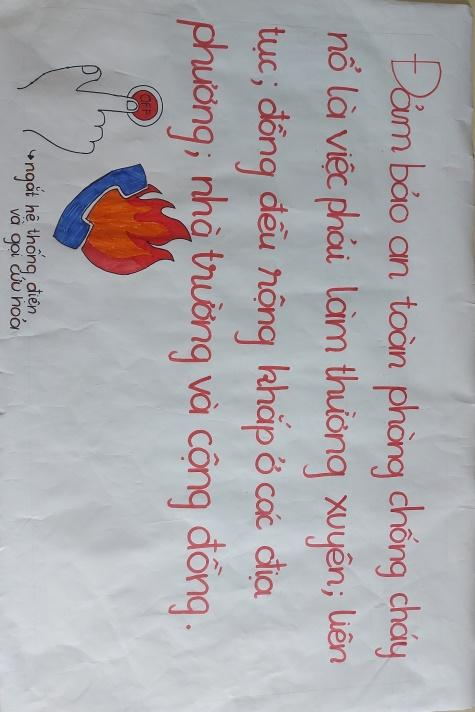 Đảm bảo an toàn phòng chống cháy
nổ là việc phải làm thường xuyên; liên
tục; đồng đều rộng khắp ở các địa
phương; nhà trường và cộng đồng.
OFF
→ ngắt hệ thống điện
và gọi cứu hỏa